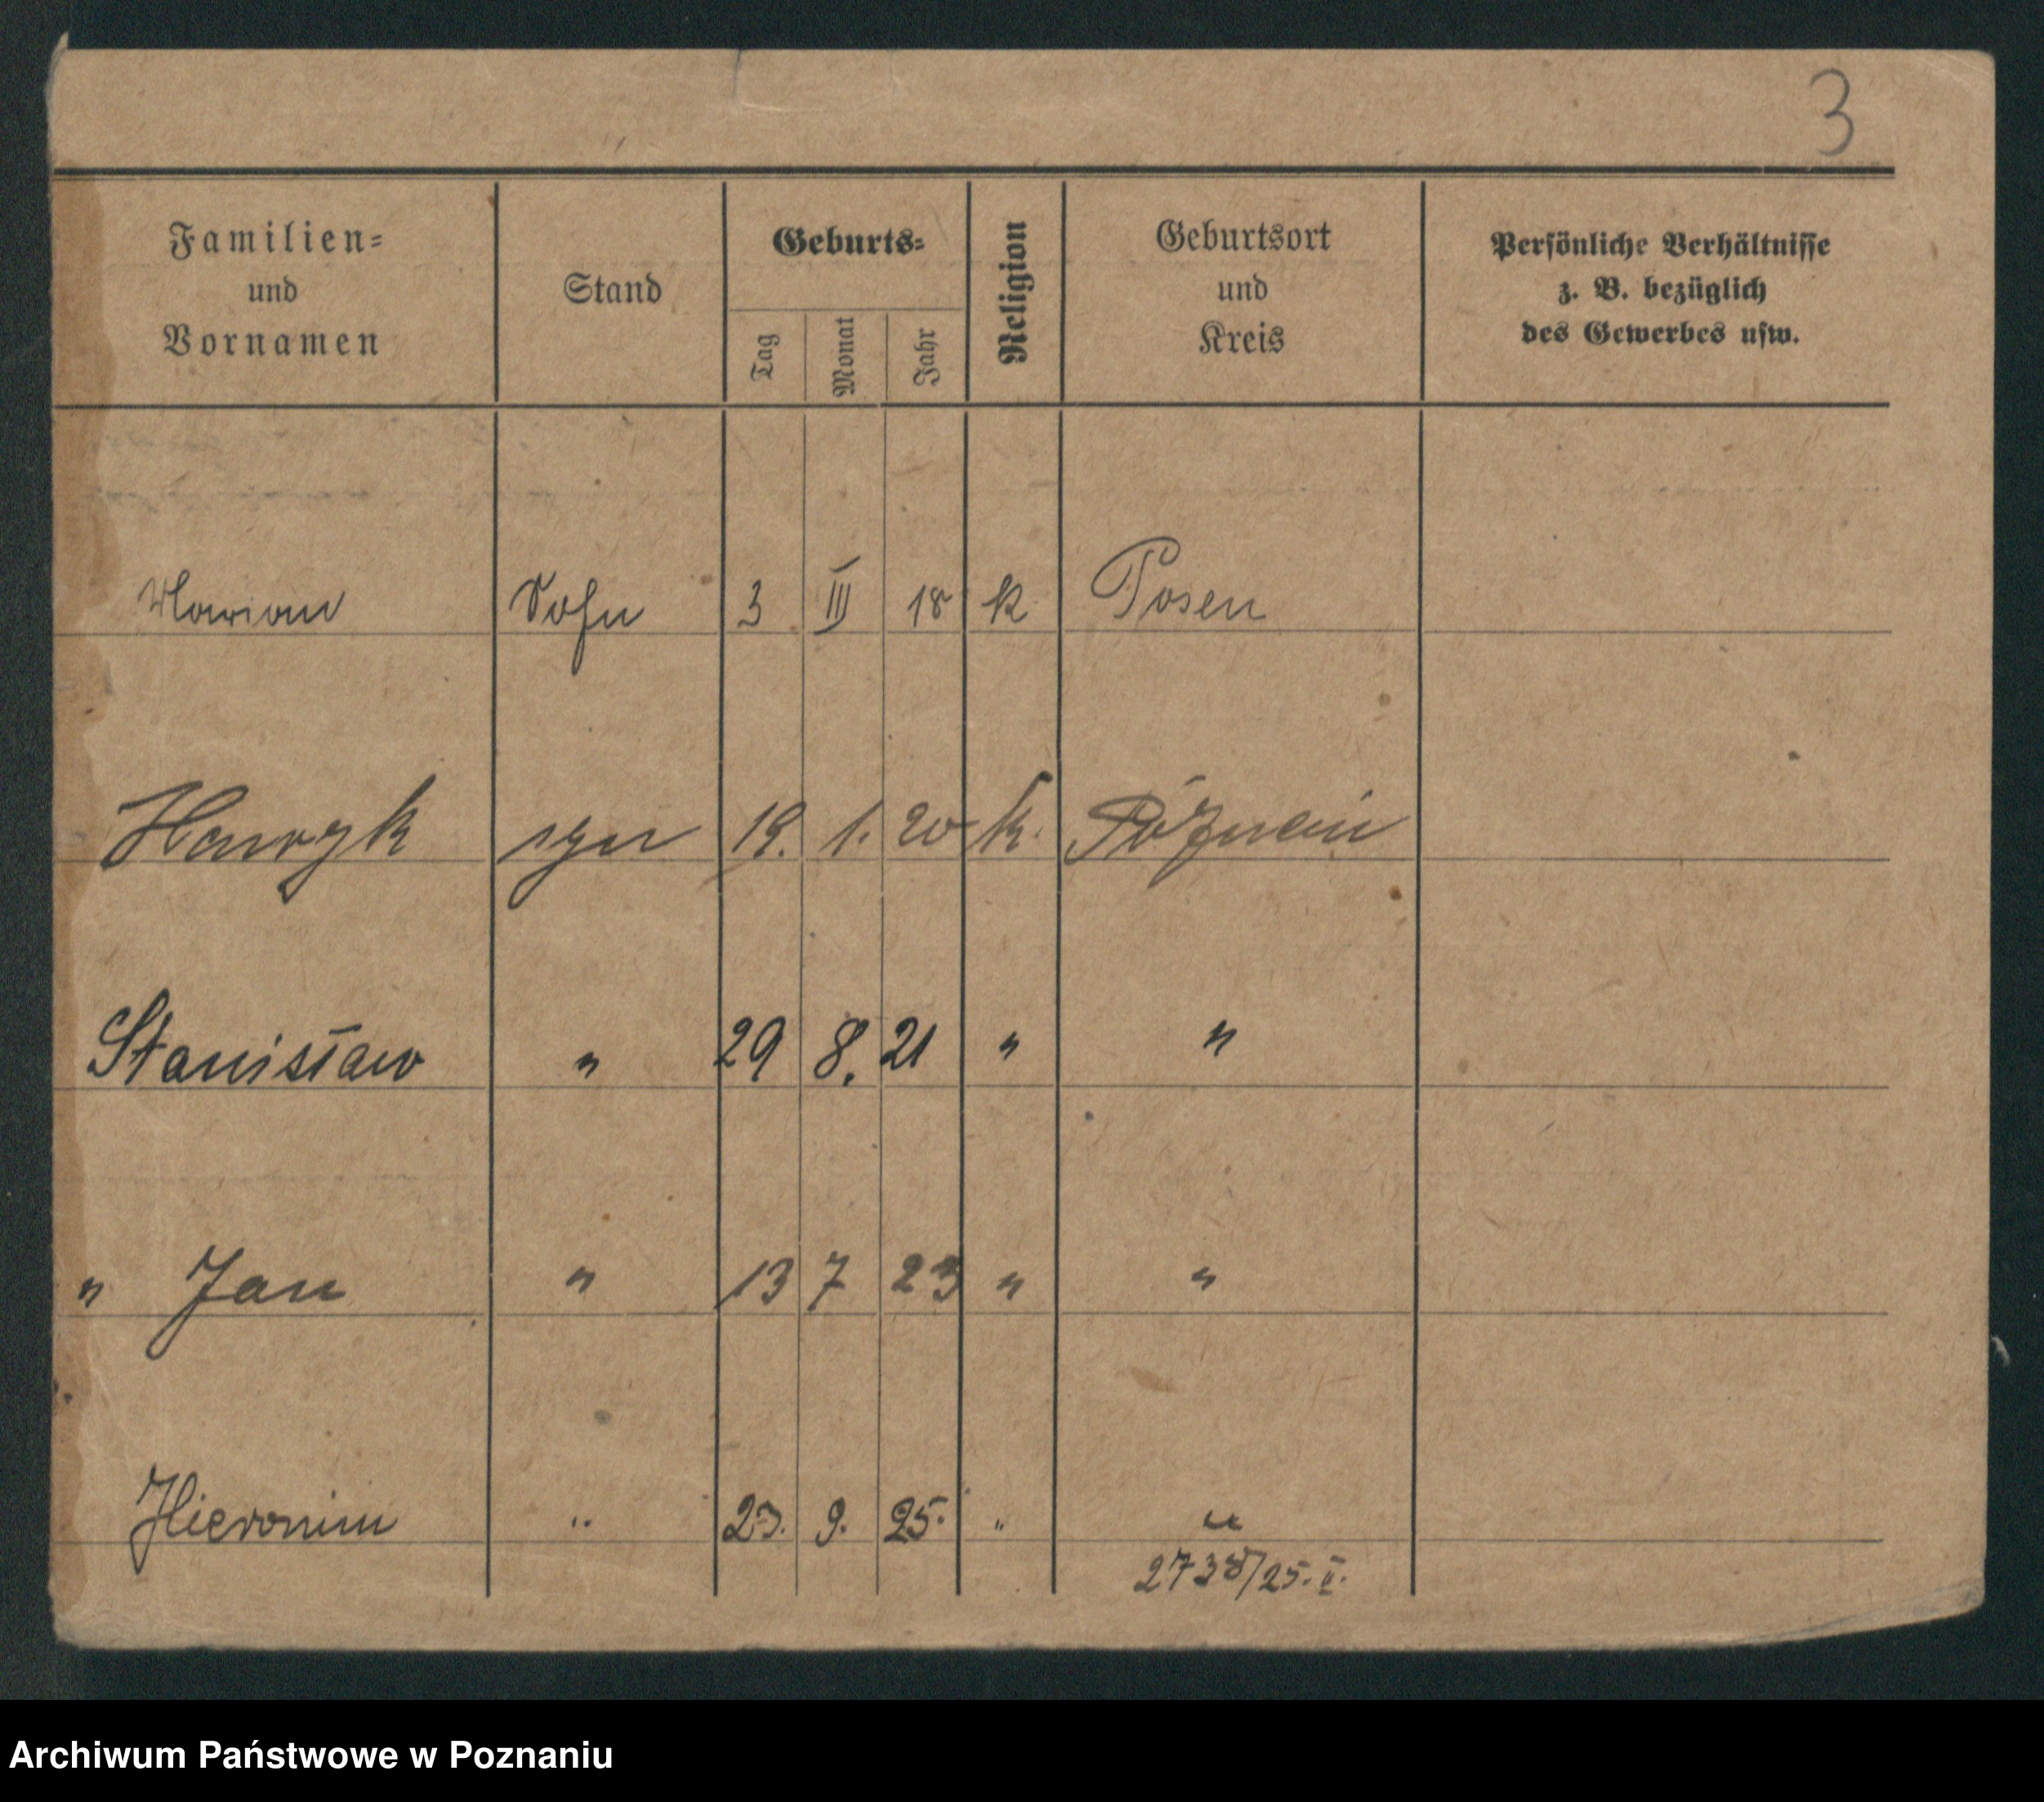 3
Familien=
und
Vornamen
Stand
Geburts=
Tag
Monat
Jahr
Religion
Geburtsort
und
Kreis
Persönliche Verhältnisse
z. B. bezüglich
des Gewerbes usw.
Marian Sohn 3 III 18 k Posen
Henryk syn 19. 1. 20 k. Poznań
Stanisław " 29 8. 21 " "
" Jan " 13 7 23 " "
Hieronim " 23. 9. 25. " "
2738/25. II.
Archiwum Państwowe w Poznaniu